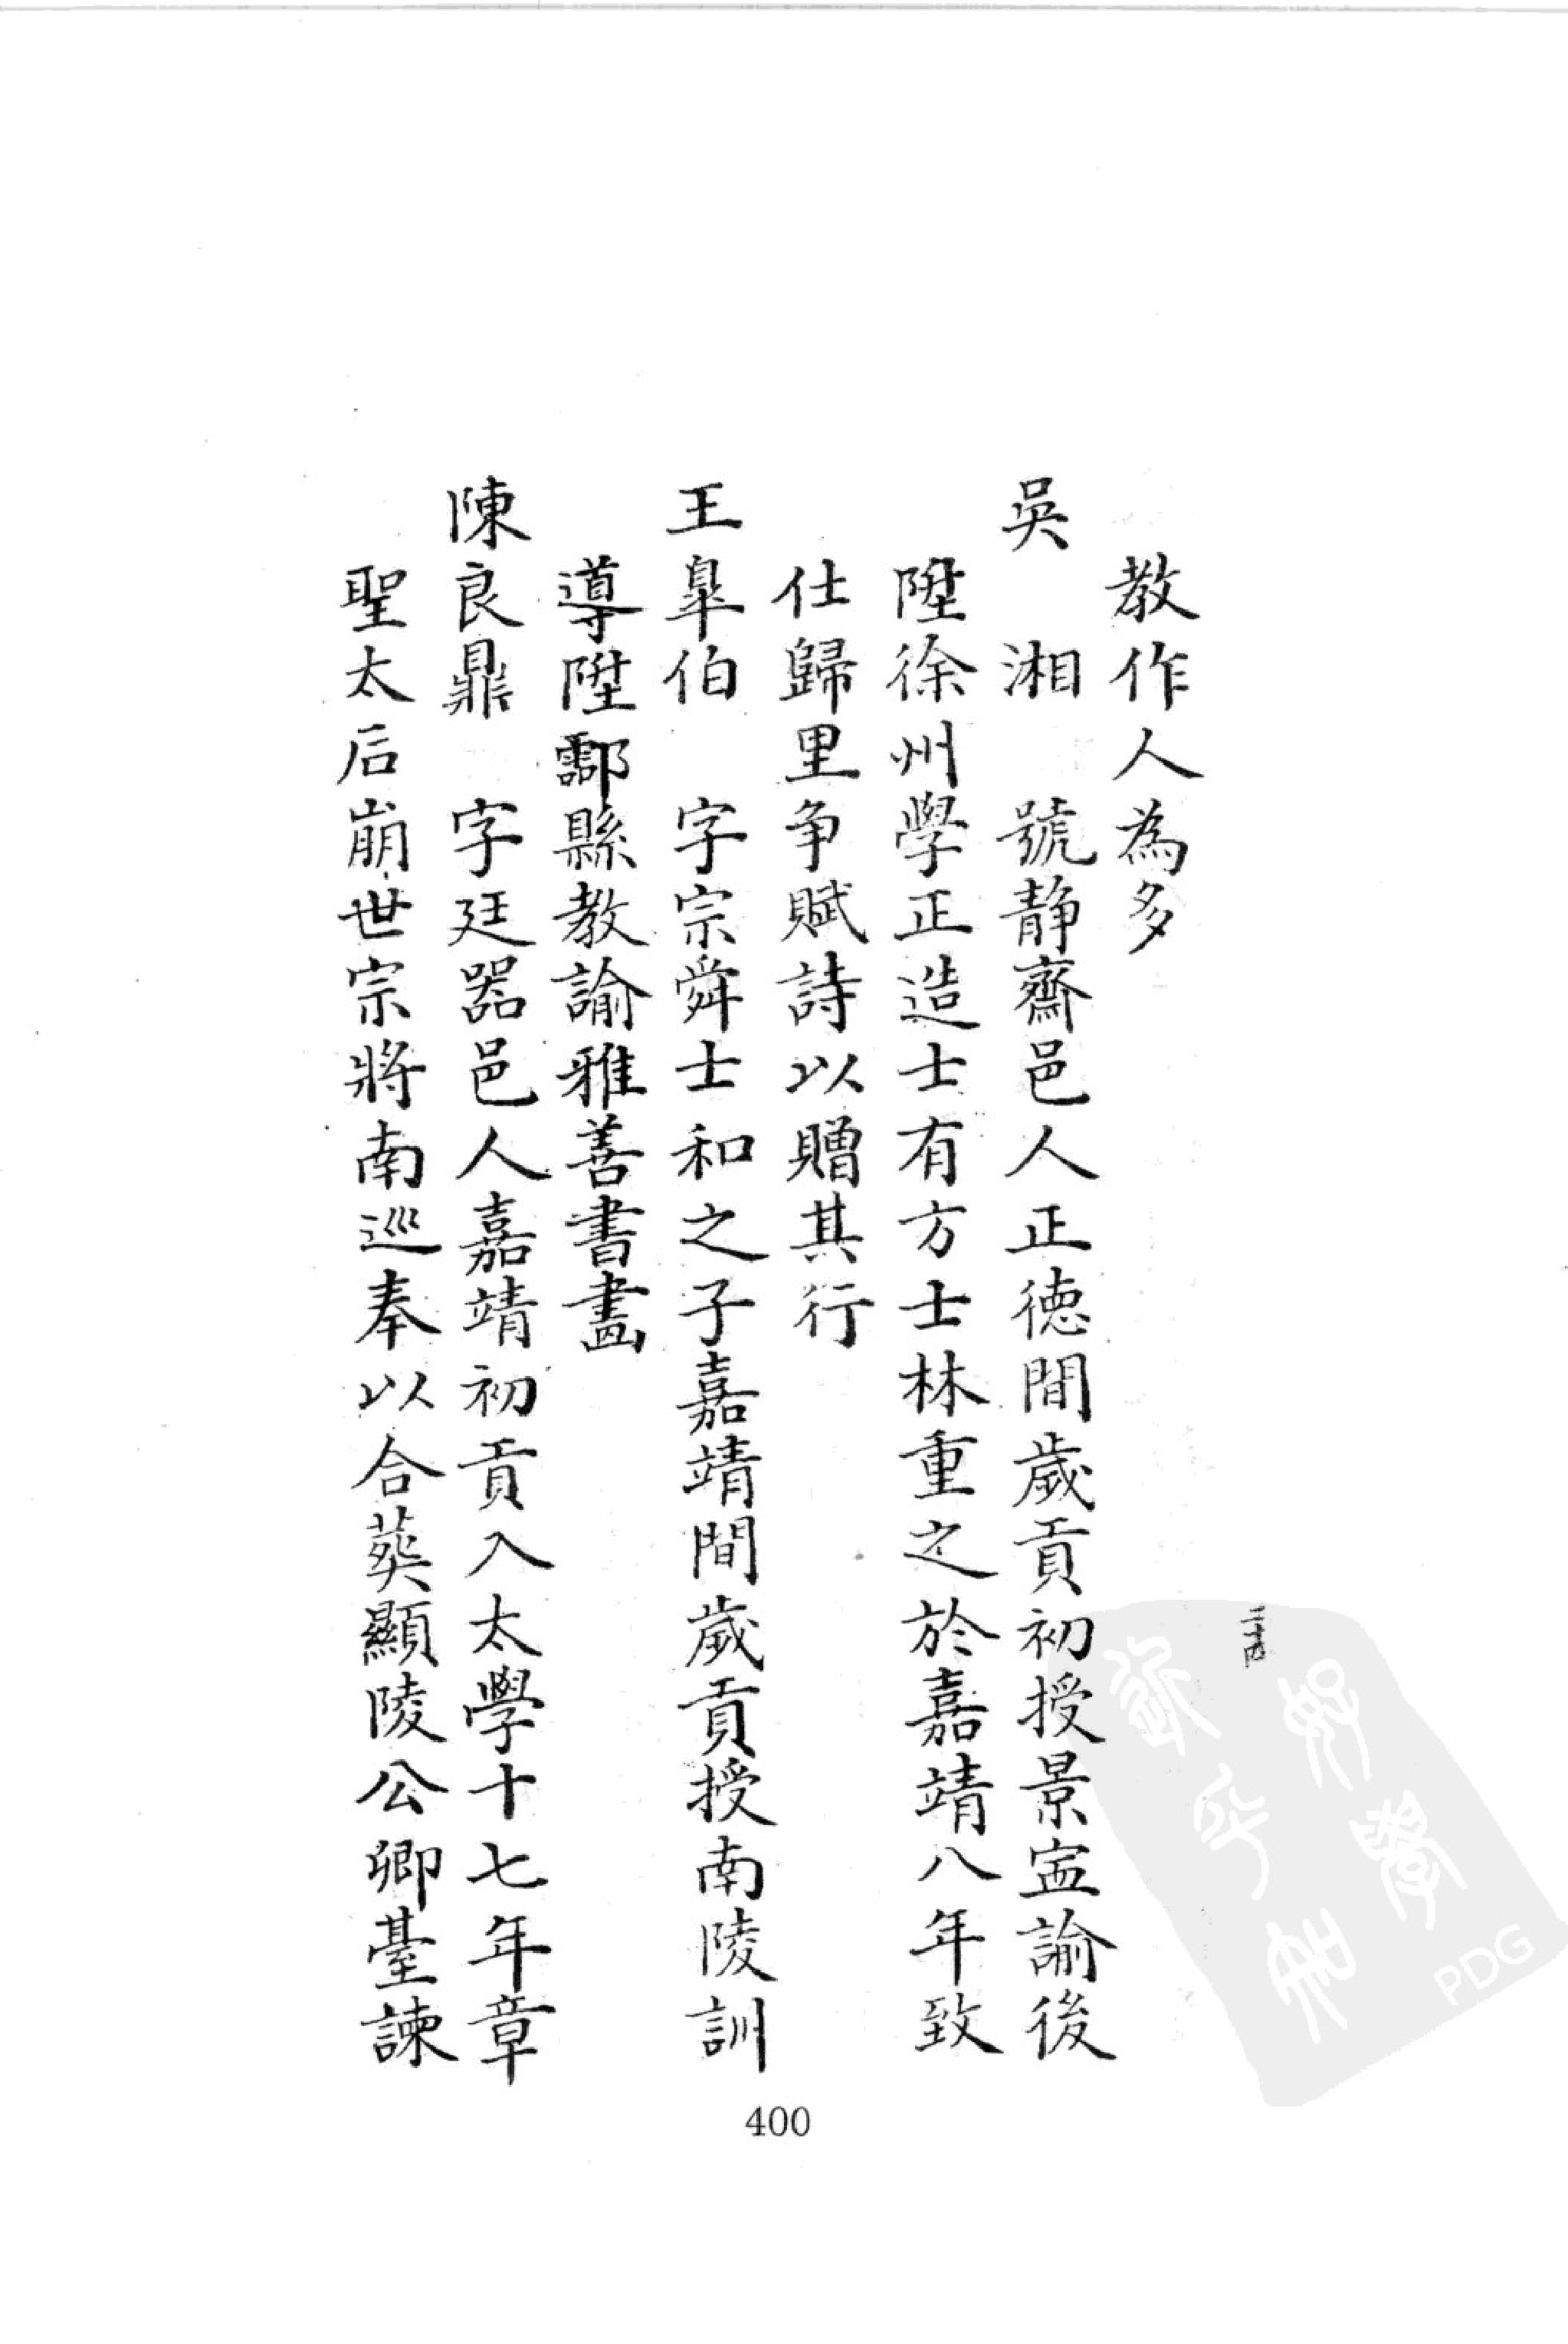 教作人為多
吳　湘　號静齋邑人正徳間歲貢初授景寍諭後
陞徐州學正造士有方士林重之於嘉靖八年致
仕歸里争賦詩以贈其行
王臯伯　字宗舜士和之子嘉靖間歲貢授南陵訓
導陞酃縣教諭雅善書畫
陳良鼎　字廷器邑人嘉靖初貢入太學十七年章
聖太后崩世宗將南巡奉以合葬顯陵公卿臺諫
二十四
400
PDG